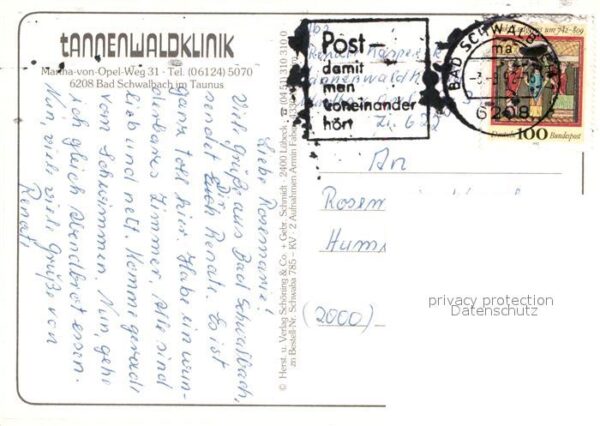 TANNENWALDKLINIK
Martha-von-Opel-Weg 31 · Tel. (06124) 5070
6208 Bad Schwalbach im Taunus
Liebe Rosemarie!
Viele Grüße aus Bad Schwalbach,
sendet Dir Renate. Es ist
ganz toll hier. Habe ein wun-
derbares Zimmer. Alle sind
lieb und nett. Komme gerade
vom Schwimmen. Nun, gehe
ich gleich Abendbrot essen.
Nun viele viele Grüße von
Renate
© Herst. u. Verlag Schöning & Co. + Gebr. Schmidt · 2400 Lübeck · ☎ (0451) 310 310
zu Bestell-Nr. Schwaba 785 – KV · 2 Aufnahmen Armin
Post–
damit
man
voneinander
hört
BAD SCHWALB
6208
100
Deutsche Bundespost
Abs.
Renate
Tannenwald
Zi. 622
An
Rosem
(2000)
privacy protection
Datenschutz